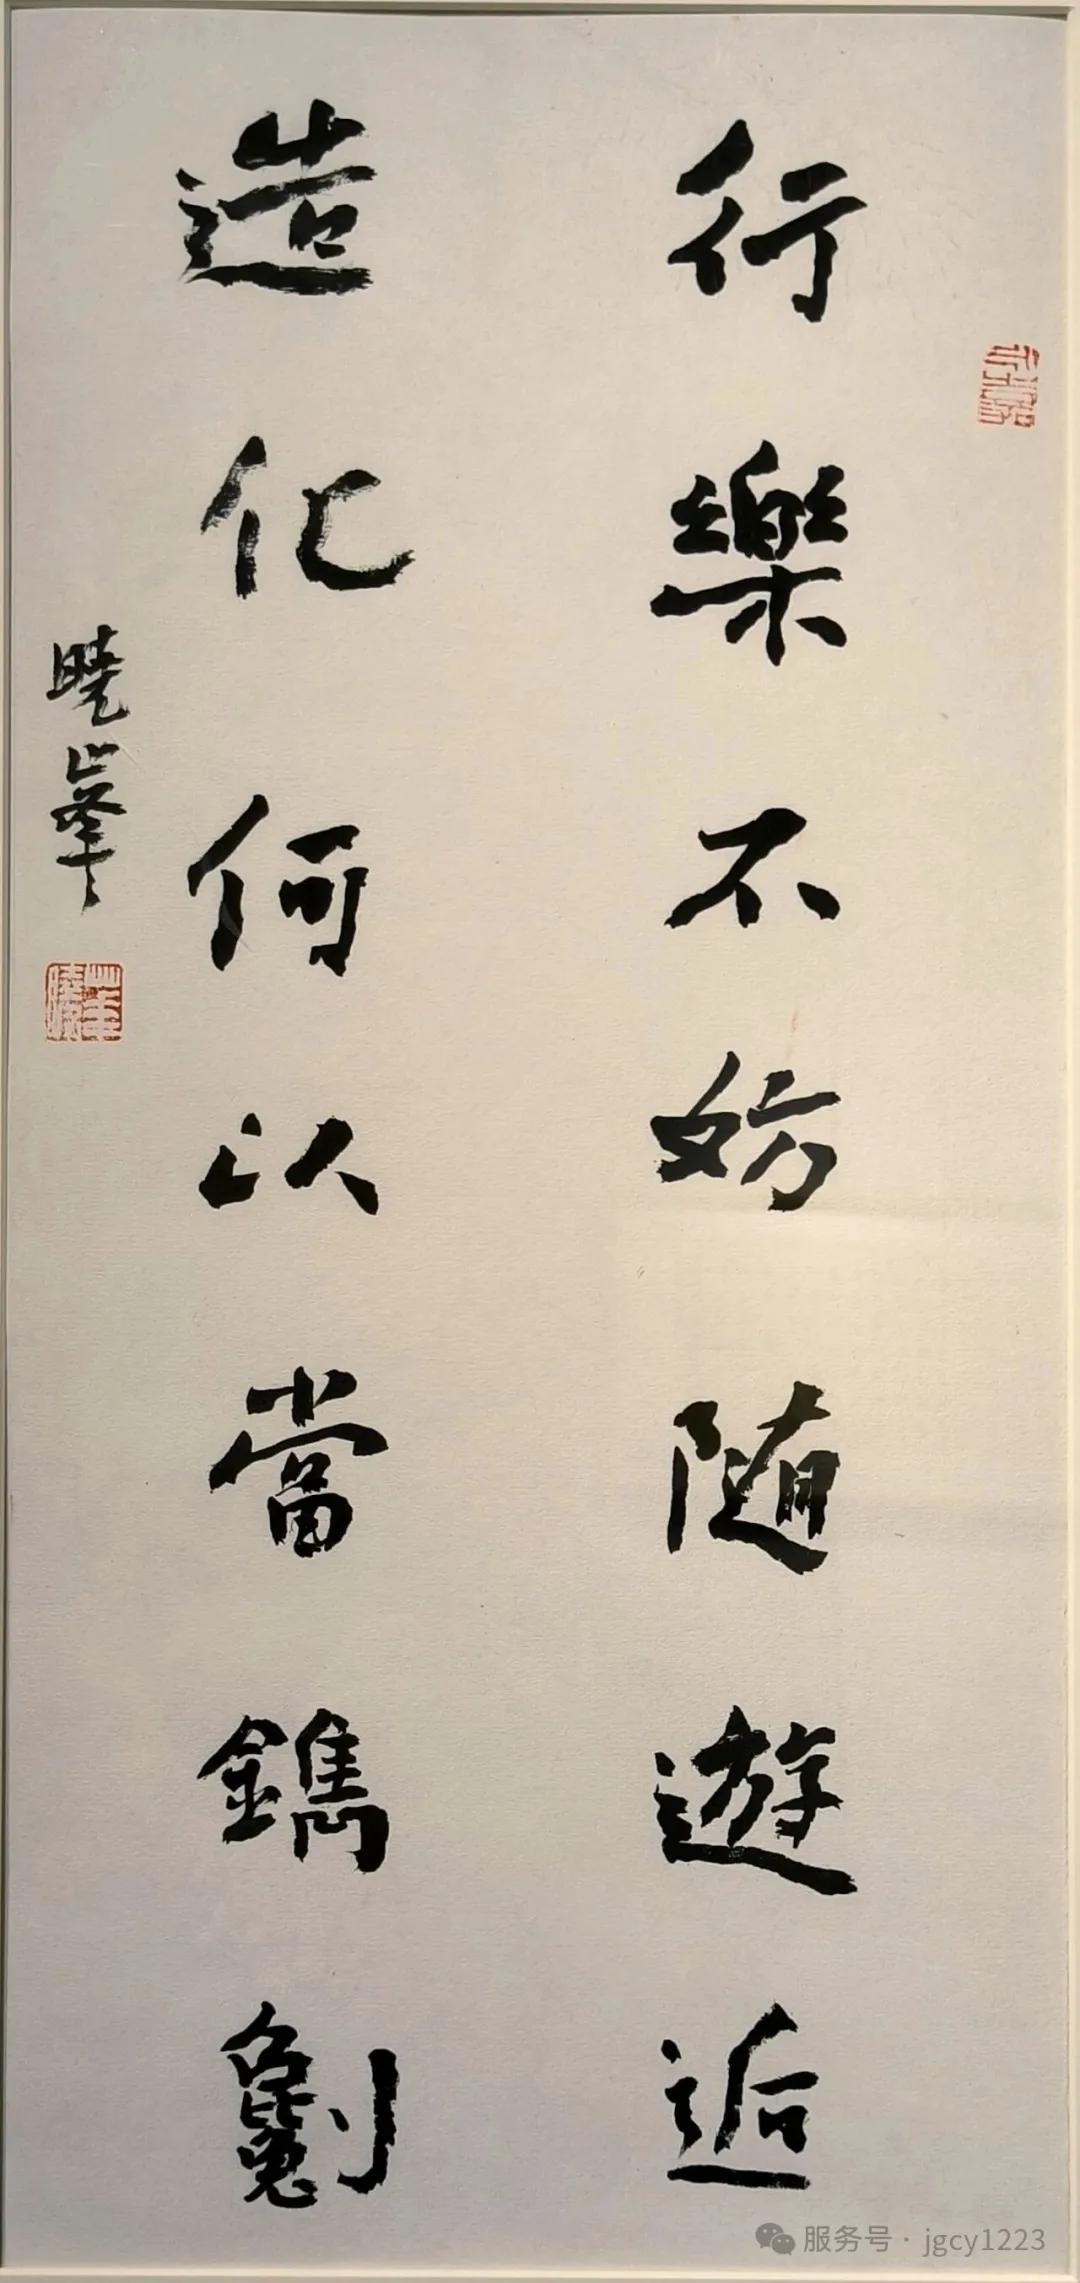 行樂不妨随遊逅
造化何以當鐫劖
曉峯
永嘉
服务号 · jgcy1223